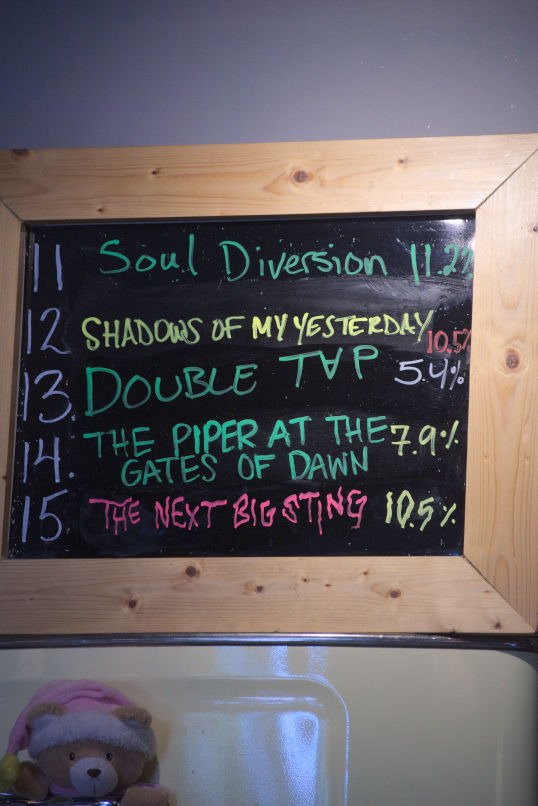 11 Soul Diversion 11.2%
12 SHADOWS OF MY YESTERDAY 10.5%
13. DOUBLE TAP 5.4%
14. THE PIPER AT THE 7.9%
GATES OF DAWN
15. THE NEXT BIG STING 10.5%